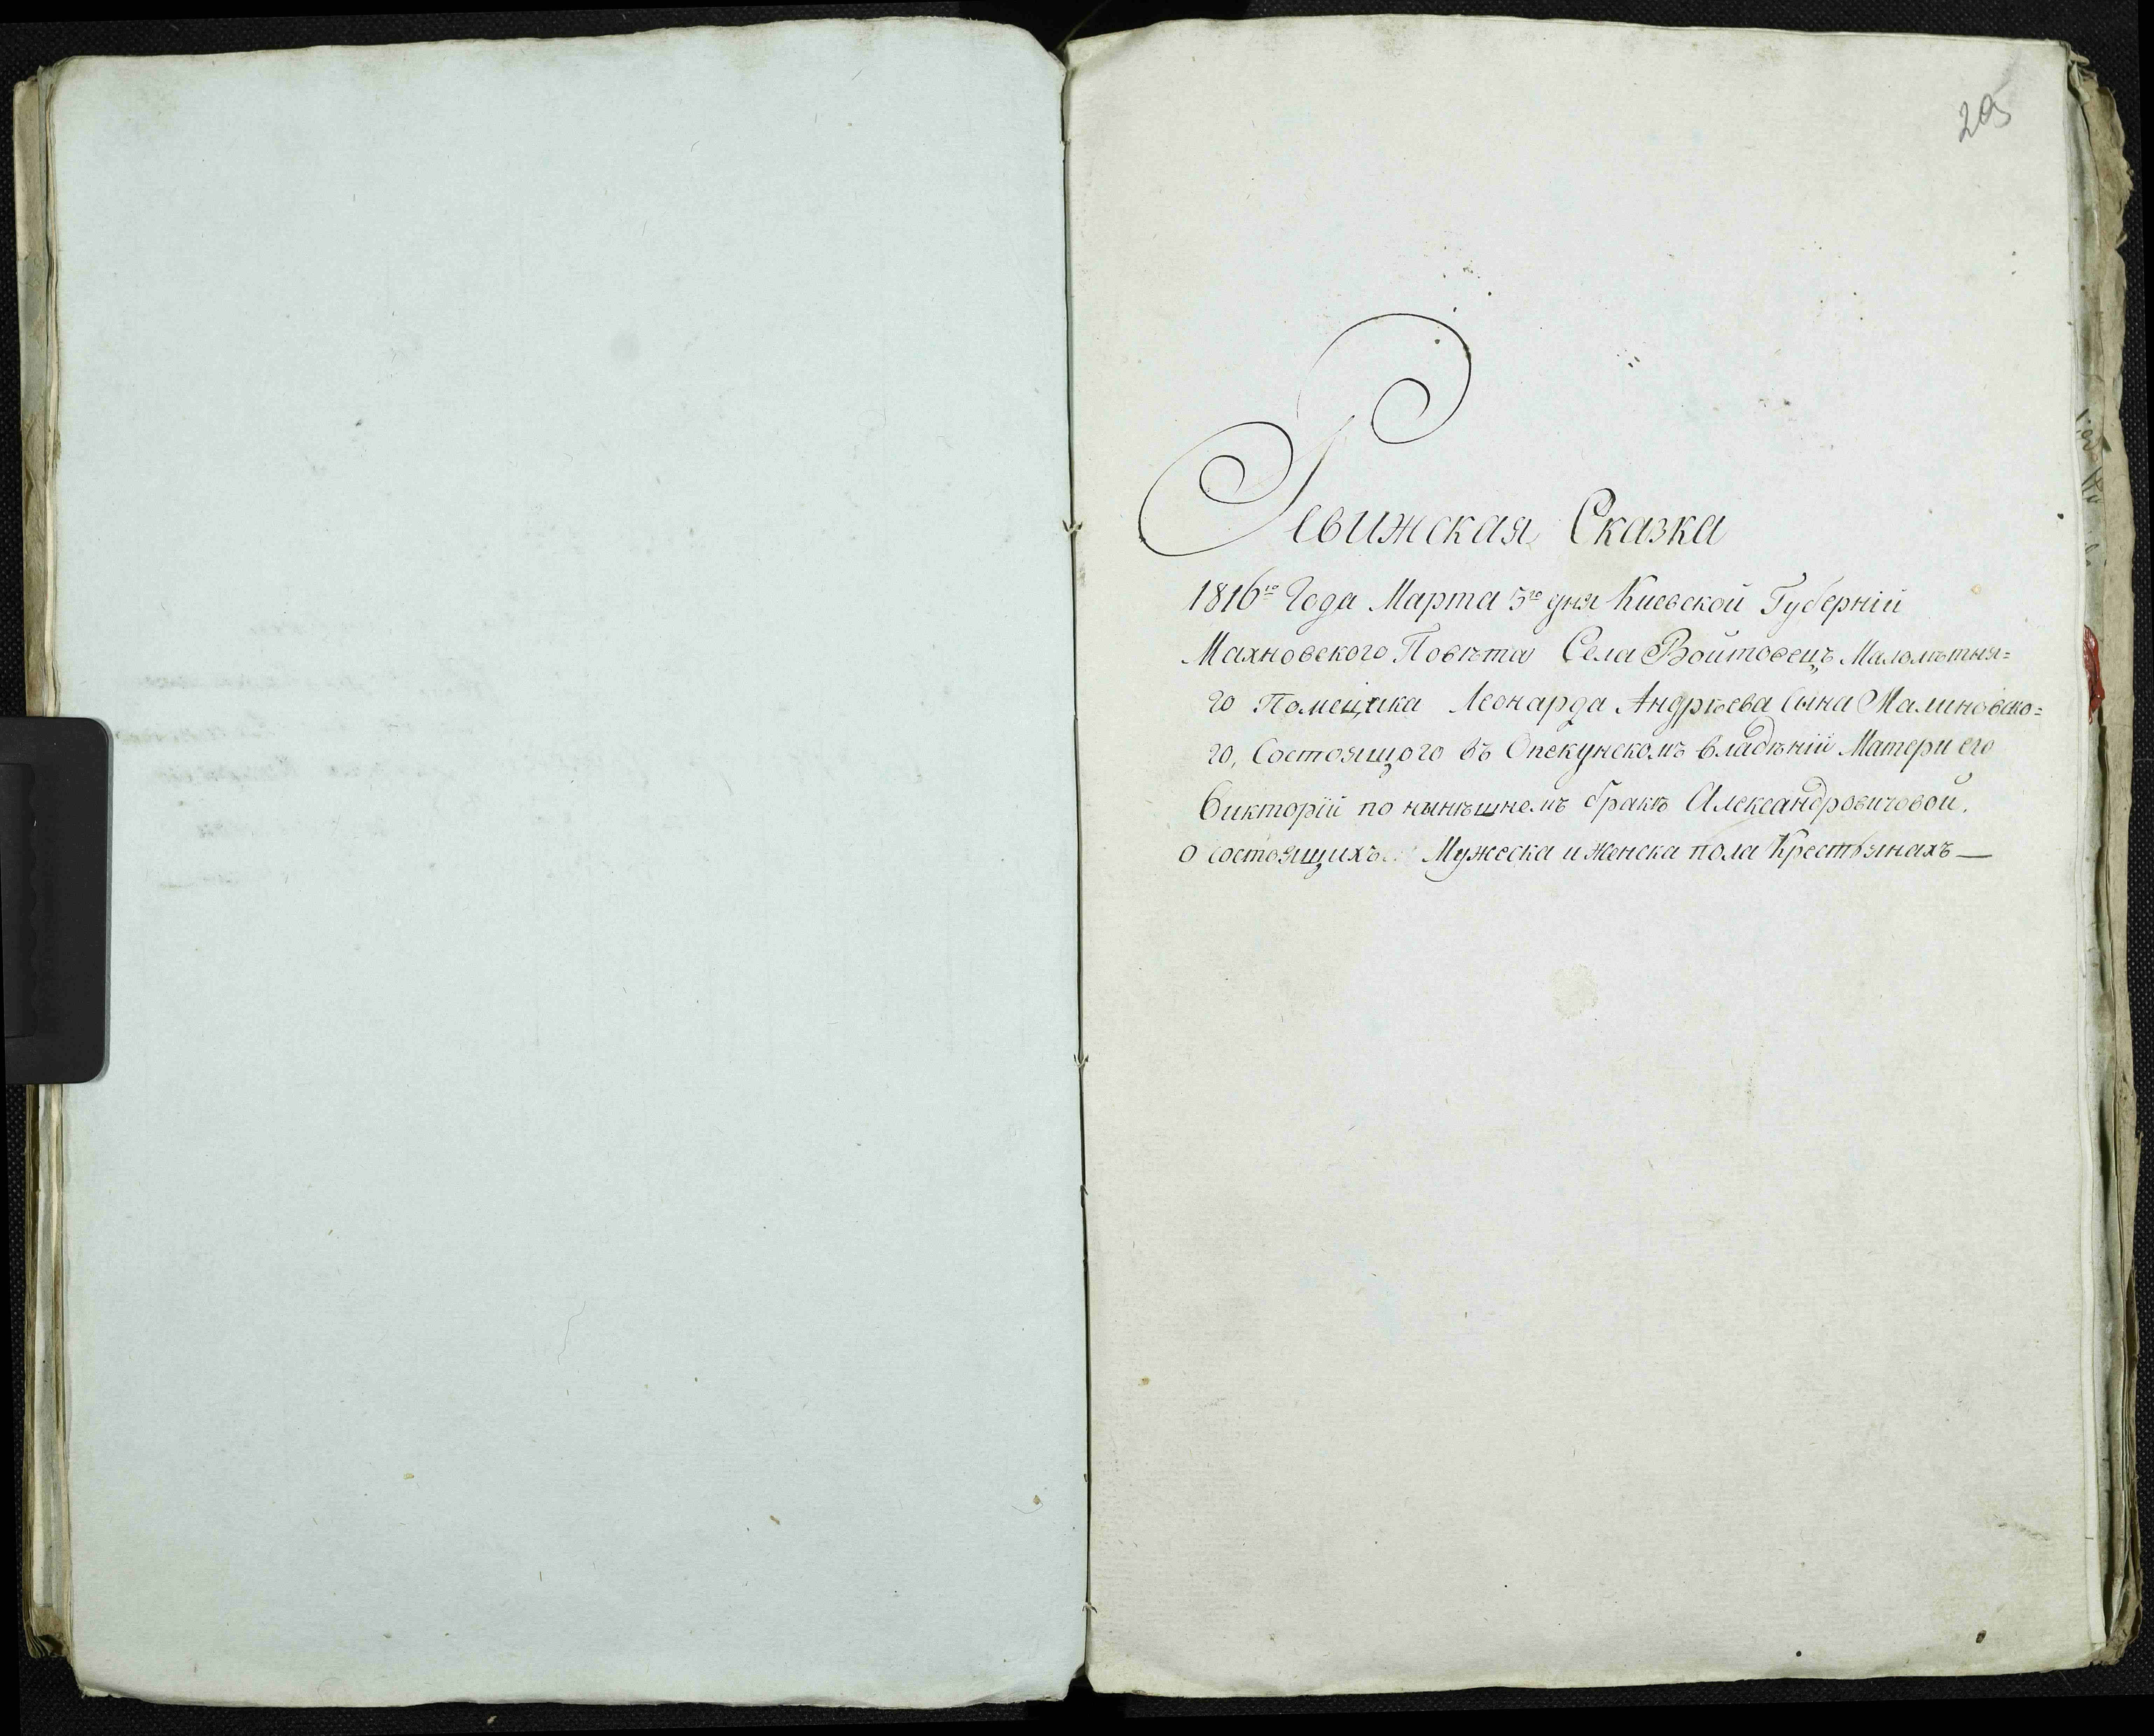 205
Ревижская Сказка
1816го Года Марта 5го дня Киевской Губерніи
Махновского Повѣта Села Войтовецъ Малолѣтня=
го Помещика Леонарда Андрѣева Сына Малиновско=
го, Состоящого въ Опекунскомъ владѣніи Матери его
Викторіи по нынѣшнемъ бракѣ Александровичовой,
О состоящихъ Мужеска и женска пола Крестьянахъ—